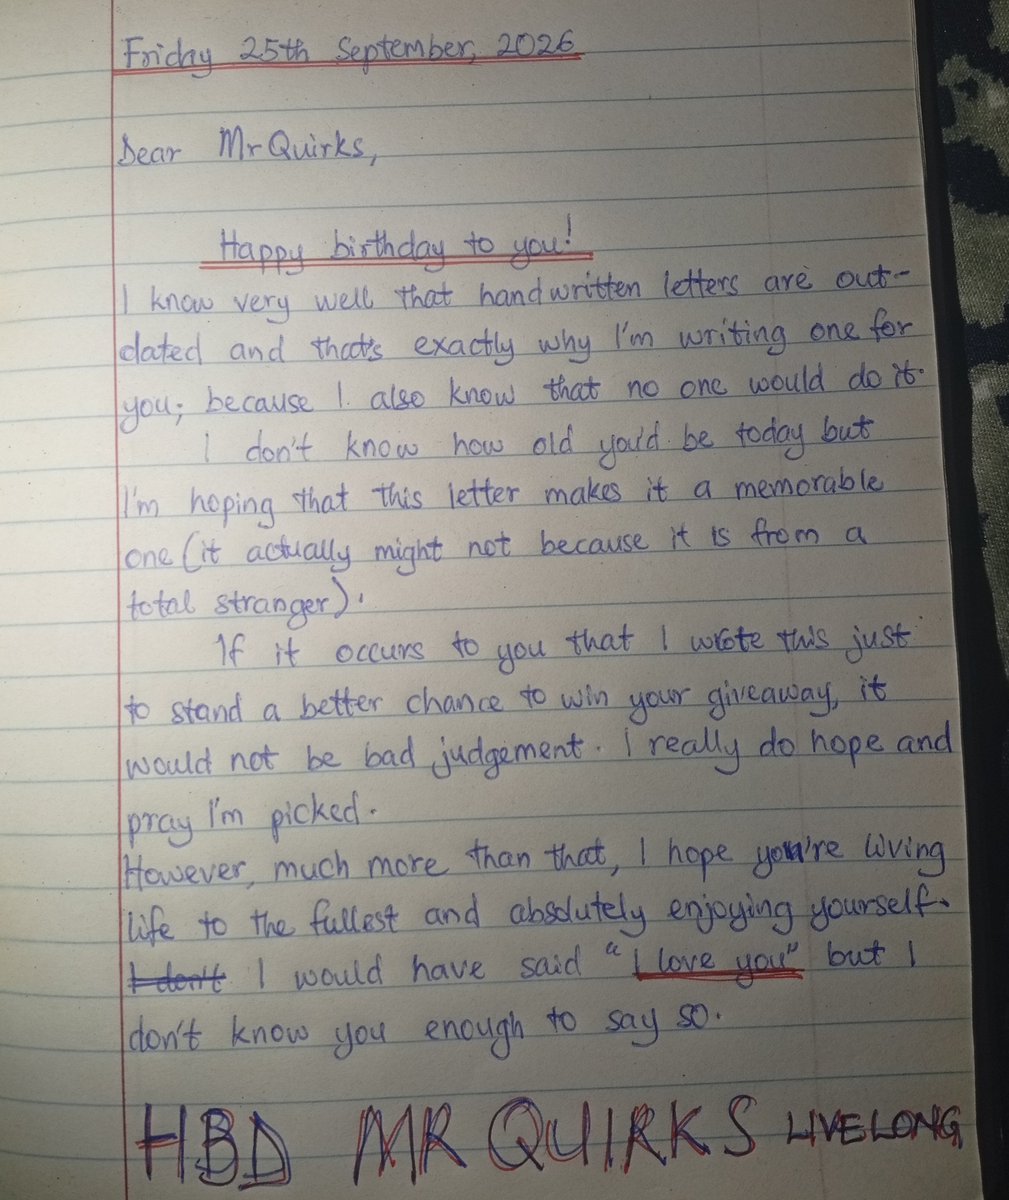 Friday 25th September, 2026
Dear Mr Quirks,
Happy birthday to you!
I know very well that handwritten letters are out-
dated and that's exactly why I'm writing one for
you; because I also know that no one would do it.
I don't know how old you'd be today but
I'm hoping that this letter makes it a memorable
one (it actually might not because it is from a
total stranger).
If it occurs to you that I wrote this just
to stand a better chance to win your giveaway, it
would not be bad judgement. I really do hope and
pray I'm picked.
However, much more than that, I hope you're living
life to the fullest and absolutely enjoying yourself.
I don't I would have said "I love you" but I
don't know you enough to say so.
HBD MR QUIRKS LIVE LONG